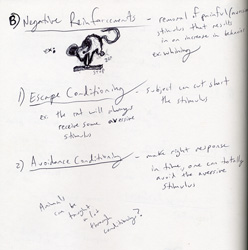 B) Negative Reinforcements - removal of painful/
stimulus that results
in an increase in behavior
ex:
ex. whining
1) Escape Conditioning - subject can cut short
the stimulus
ex. the rat will always
receive some aversive
stimulus
2) Avoidance Conditioning - make right response
in time, one can totally
avoid the aversive
stimulus
Animals
can be
taught
a lot
through
conditioning?